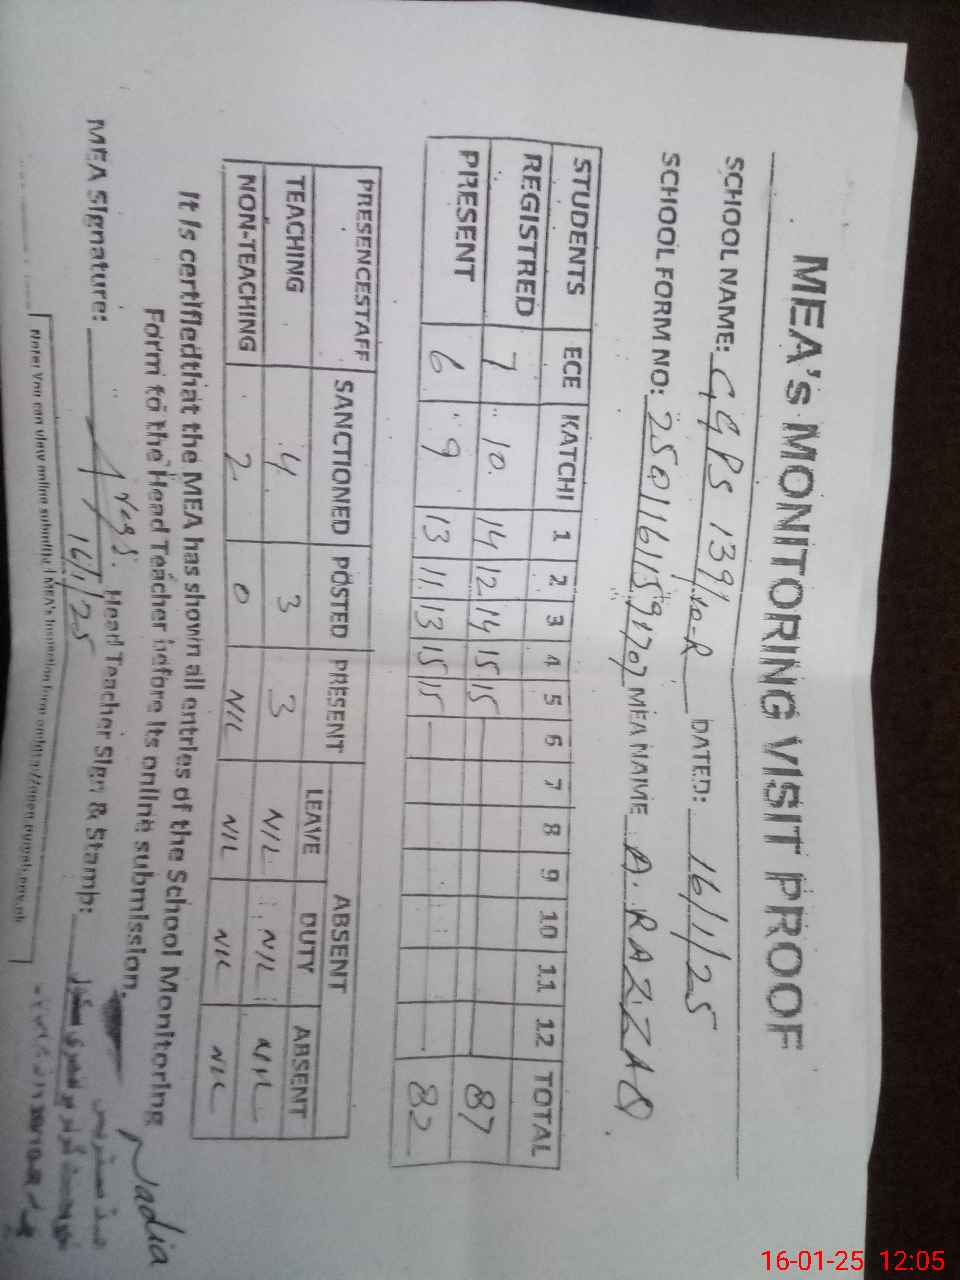 MEA's MONITORING VISIT PROOF
SCHOOL NAME: GGPS 139/10-R DATED: 16/1/25
SCHOOL FORM NO: MEA NAME A. RAZZAQ.
STUDENTS ECE KATCHI 1 2 3 4 5 6 7 8 9 10 11 12 TOTAL
REGISTRED 7 10 14 12 14 15 15 87
PRESENT 6 9 13 11 13 15 15 82
PRESENCESTAFF SANCTIONED POSTED PRESENT ABSENT
LEAVE DUTY ABSENT
TEACHING 4 3 3 NIL NIL NIL
NON-TEACHING 2 0 NIL NIL NIL NIL
It is certifiedthat the MEA has shown all entries of the School Monitoring
Form to the Head Teacher before its online submission.
Nadia
MEA Signature: Head Teacher Sign & Stamp:
16/1/25
Note: You can view online submitted MEA's Inspection form on
16-01-25 12:05